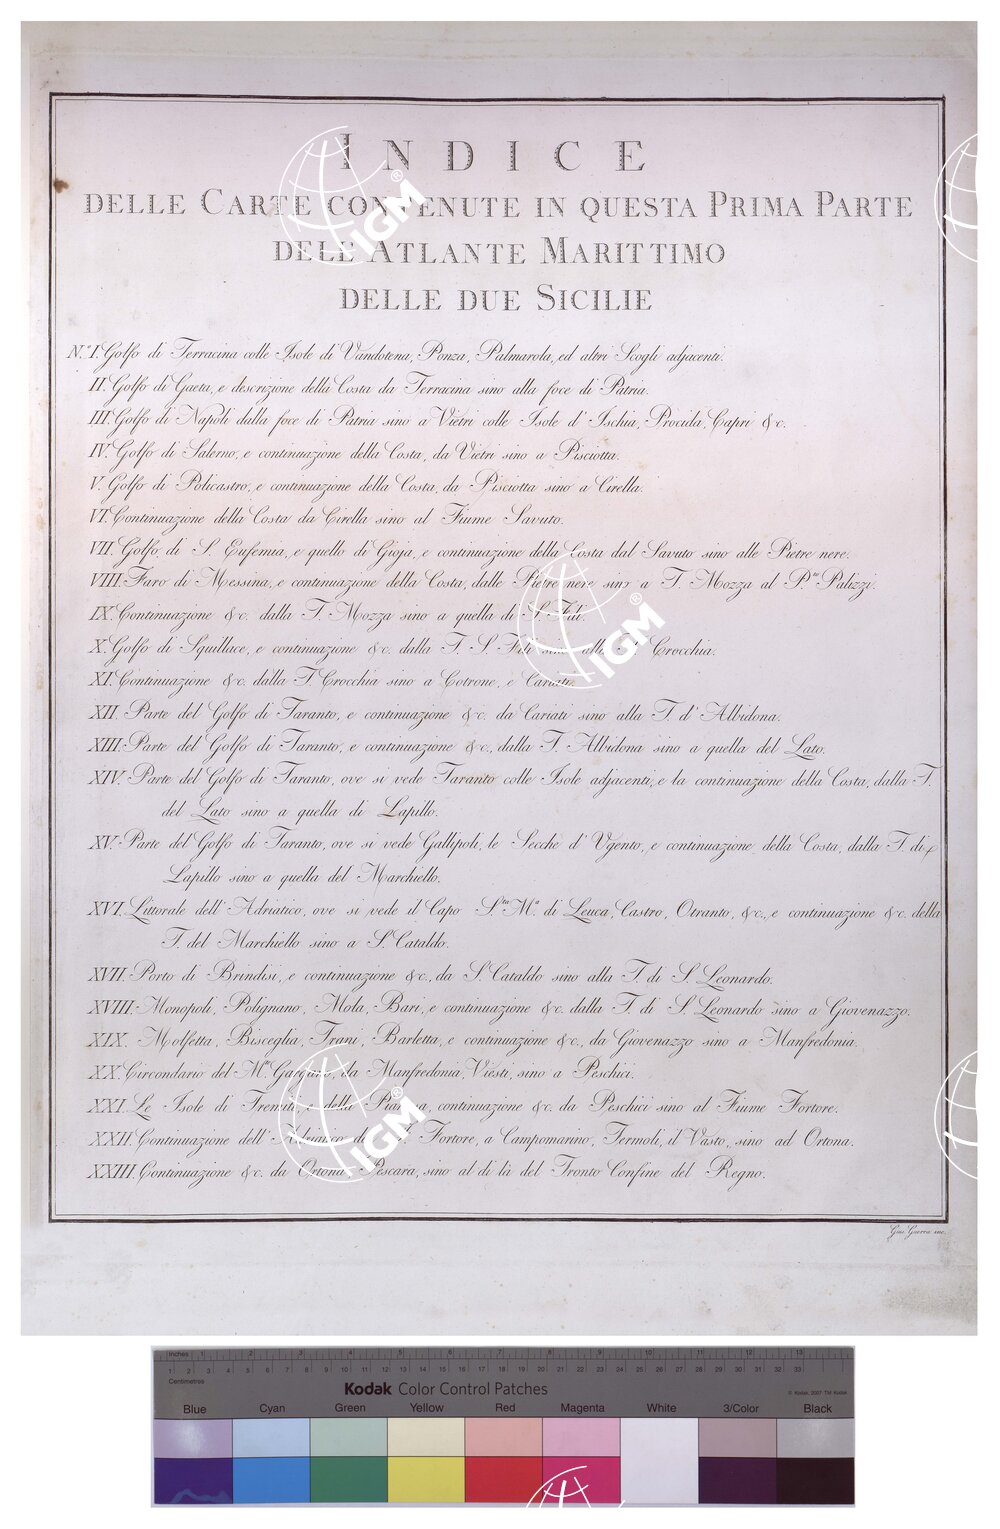 INDICE
DELLE CARTE CONTENUTE IN QUESTA PRIMA PARTE
DELL'ATLANTE MARITTIMO
DELLE DUE SICILIE
N.º I. Golfo di Terracina colle Isole di Vandotena, Ponza, Palmarola, ed altri Scogli adjacenti.
II. Golfo di Gaeta, e descrizione della Costa da Terracina sino alla foce di Patria.
III. Golfo di Napoli dalla foce di Patria sino a Vietri colle Isole d'Ischia, Procida, Capri &c.
IV. Golfo di Salerno, e continuazione della Costa, da Vietri sino a Pisciotta.
V. Golfo di Policastro, e continuazione della Costa, da Pisciotta sino a Cirella.
VI. Continuazione della Costa da Cirella sino al Fiume Savuto.
VII. Golfo di S. Eufemia, e quello di Gioja, e continuazione della Costa dal Savuto sino alle Pietre nere.
VIII. Faro di Messina, e continuazione della Costa, dalle Pietre nere sino a T. Mozza al P.to Palizzi.
IX. Continuazione &c. dalla T. Mozza sino a quella di S. Fili.
X. Golfo di Squillace, e continuazione &c. dalla T. S. Fili sino alla T. Crocchia.
XI. Continuazione &c. dalla T. Crocchia sino a Cotrone, e Cariati.
XII. Parte del Golfo di Taranto, e continuazione &c. da Cariati sino alla T. d'Albidona.
XIII. Parte del Golfo di Taranto, e continuazione &c., dalla T. Albidona sino a quella del Lato.
XIV. Parte del Golfo di Taranto, ove si vede Taranto colle Isole adjacenti, e la continuazione della Costa, dalla T.
del Lato sino a quella di Lapillo.
XV. Parte del Golfo di Taranto, ove si vede Gallipoli, le Secche d'Ugento, e continuazione della Costa, dalla T. di
Lapillo sino a quella del Marchiello.
XVI. Littorale dell'Adriatico, ove si vede il Capo S.ta M.a di Leuca, Castro, Otranto, &c., e continuazione &c. della
T. del Marchiello sino a S. Cataldo.
XVII. Porto di Brindisi, e continuazione &c., da S. Cataldo sino alla T. di S. Leonardo.
XVIII. Monopoli, Polignano, Mola, Bari, e continuazione &c. dalla T. di S. Leonardo sino a Giovenazzo.
XIX. Molfetta, Bisceglia, Trani, Barletta, e continuazione &c., da Giovenazzo sino a Manfredonia.
XX. Circondario del M.te Gargano, da Manfredonia, Viesti, sino a Peschici.
XXI. Le Isole di Tremiti, e della Pianosa, continuazione &c. da Peschici sino al Fiume Fortore.
XXII. Continuazione dell'Adriatico dal F. Fortore, a Campomarino, Termoli, il Vasto, sino ad Ortona.
XXIII. Continuazione &c. da Ortona, Pescara, sino al di là del Tronto Confine del Regno.
Gius. Guerra inc.
IGM®
IGM®
IGM®
Inches 1 2 3 4 5 6 7 8 9 10 11 12 13
1 2 3 4 5 6 7 8 9 10 11 12 13 14 15 16 17 18 19 20 21 22 23 24 25 26 27 28 29 30 31 32 33
Centimetres
Kodak Color Control Patches
© Kodak, 2007 TM: Kodak
Blue Cyan Green Yellow Red Magenta White 3/Color Black